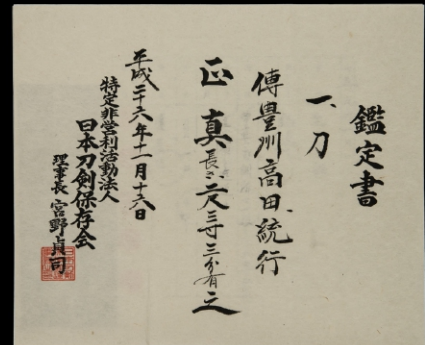 鑑定書
一、刀
傳豊州高田統行
正真 長サ二尺三寸三分有之
平成二十六年十一月十六日
特定非営利活動法人
日本刀剣保存会
理事長 宮野貞司